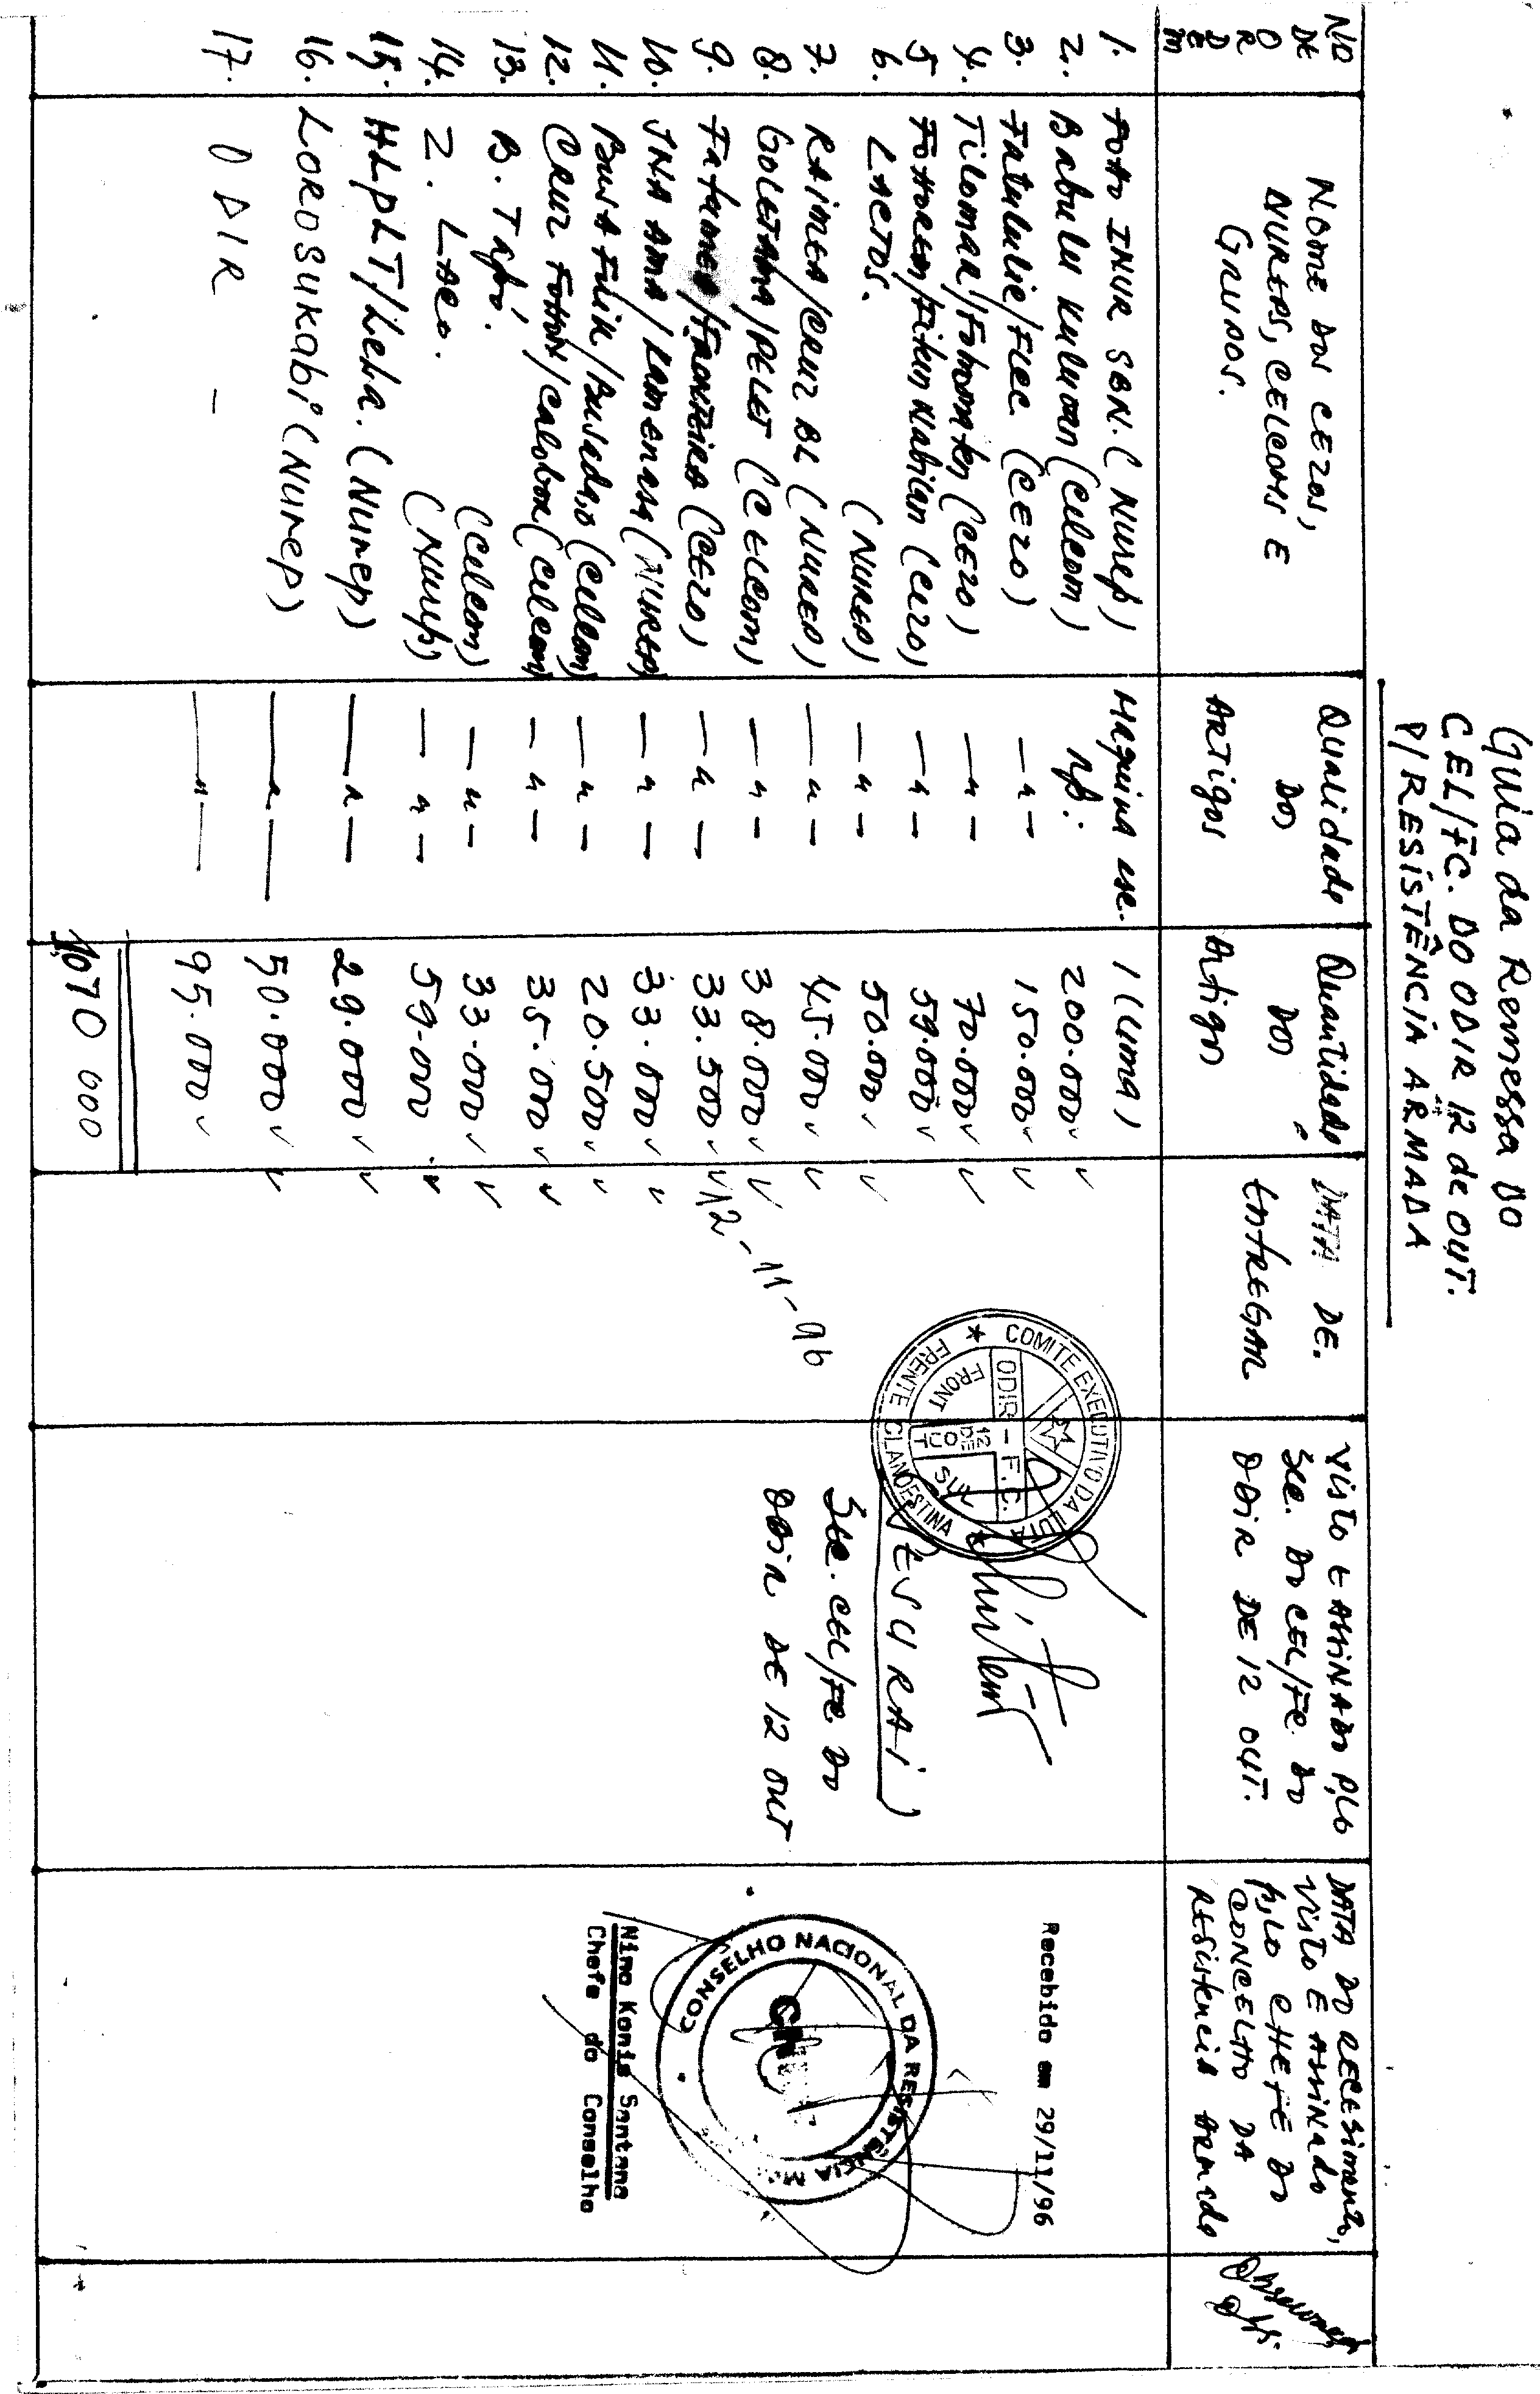 Guia da Remessa do
CEL/FC. DO ODIR 12 de OUT.
P/ RESISTÊNCIA ARMADA
NO DE ORDEM
NOME DOS CEZOS, NUREPS, CELCOMS E GRUPOS.
Qualidade DOS ARTIGOS
Quantidade DOS Artigos
DATA DE. ENTREGAR
VISTO E ASSINADO P,LO SEC. DO CEL/FC. DO ODIR DE 12 OUT.
DATA DO RECEBIMENTO, VISTO E ASSINADO P,LO CHEFE DO CONCELHO DA RESISTENCIA ARMADA
1. FOHO INUR SBN. (Nurep) Maquina esc. 1 (uma)
2. Babulu Kuluan (Celcom) Rp: 200.000
3. Fatululie/FLEC (CEZO) —"— 150.000
4. Tilomar/Fohomatn (CEZO) —"— 70.000
5. FOHOREM/Fikun Nabilan (CEZO) —"— 59.000
6. LACTOS. (NUREP) —"— 50.000
7. RAIMEA/CRUZ BL (NUREP) —"— 45.000
8. GOLETAMA/PELET (CELCOM) —"— 38.000
9. Fatumea/FRONTEIRA (CEZO) —"— 33.500
10. INA AMA/Kamenasa (NUREP) —"— 33.000
11. (Celcom) —"— 20.500
12. CRUZ FOHON/Calobon (Celcom) —"— 35.000
13. B. Tafó. (Celcom) —"— 33.000
14. Z. LACO. (Nurep) —"— 59.000
15. HLPLT/Leba. (Nurep) —"— 29.000
16. LOROSUKABI (Nurep) —"— 50.000
17. ODIR — —"— 95.000
1.070 000
12-11-96
COMITE EXECUTIVO DA LUTA
FRENTE CLANDESTINA
ODIR - F.C.
FRONT SUL
12 DE OUT
(VESU RAI)
SEC. CEL/FC. DO
ODIR DE 12 OUT
Recebido em 29/11/96
CONSELHO NACIONAL DA RESISTÊNCIA
Nino Konis Santana
Chefe do Conselho